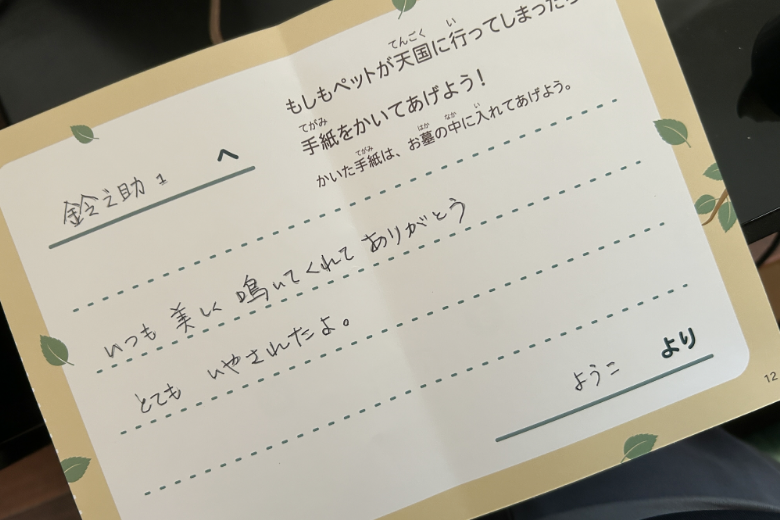 もしもペットが天国に行ってしまったら
てんごく い
手紙をかいてあげよう!
てがみ
かいた手紙は、お墓の中に入れてあげよう。
てがみ はか なか い
鈴之助 1 へ
いつも 美しく 鳴いてくれて ありがとう
とても いやされたよ。
ようこ より
12